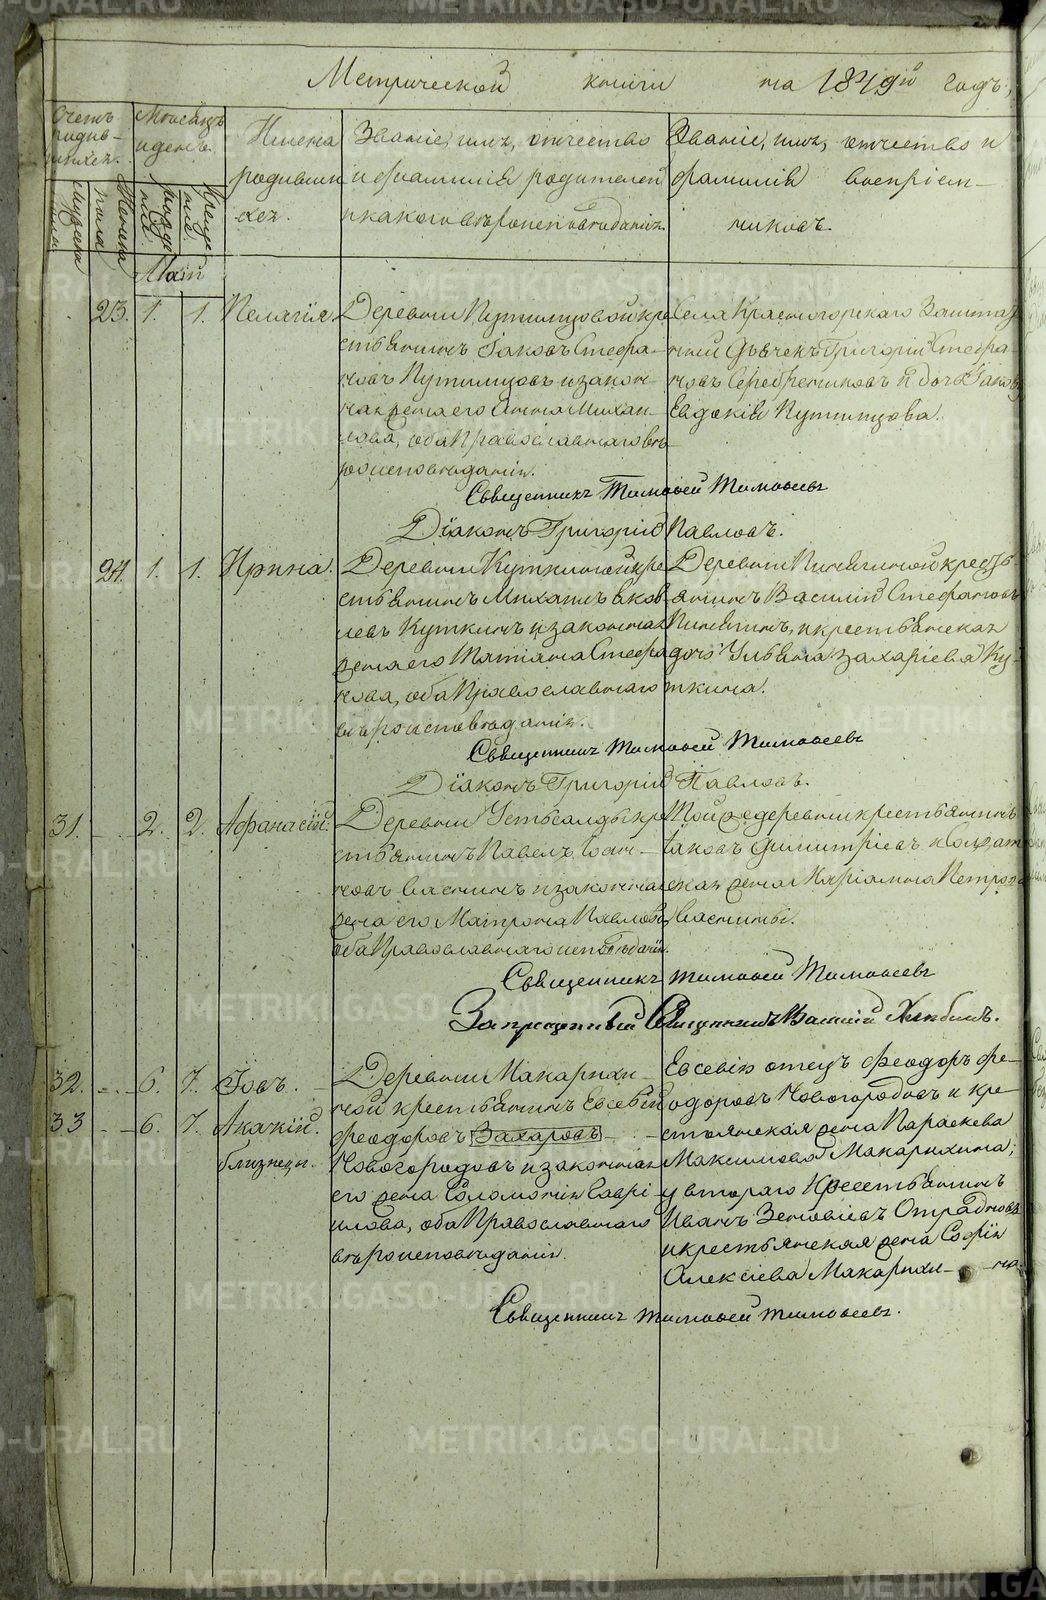 Метрической книги на 1849й годъ,
Счетъ родив-шихся.
Мѣсяцъ и день.
Имена родивших-ся.
Званіе, имя, отчество и фамилія родителей и какого вѣроисповѣданія.
Званіе, имя, отчество и фамилія воспріем-никовъ.
Мужеска пола.
Женска пола.
рожде-нія.
креще-нія.
Май
23. 1. 1. Пелагія.
Деревни Путимцовой кре
стьянинъ Іаковъ Стефа-
новъ Путимцовъ и закон-
ная жена его Анна Михаи-
лова, оба Православнаго вѣ-
роисповѣданія.
Села Красногорскаго Заштат
ный Дьячекъ Григорій Стефа-
новъ Серебрениковъ и дочь Іакова
Евдокія Путимцова.
Священникъ Тимоѳей Тимоѳеевъ
Діаконъ Григорій Павловъ.
24. 1. 1. Ирина.
Деревни Куткиной кре
стьянинъ Михаилъ Яков-
левъ Куткинъ и законная
жена его Татіана Стефа
нова, оба Православнаго
вѣроисповѣданія.
Деревни Пинягиной кресть-
янинъ Василій Стефановъ
Пинягинъ, и крестьянская
дочь Ульяна Захаріева Ку-
ткина.
Священникъ Тимоѳей Тимоѳеевъ
Діаконъ Григорій Павловъ.
31. 2. 2. Афанасій.
Деревни Устьсалды кре
стьянинъ Павелъ Іоан-
новъ Васнинъ и законная
жена его Матрона Павлова
оба Православнаго исповѣданія.
Той же деревни крестьянинъ
Іаковъ Димитріевъ и Солдат
ская жена Маріамна Петрова
Васнины.
Священникъ Тимоѳей Тимоѳеевъ
Запрещенный Священникъ Василій Хлябинъ.
32. 6. 7. Іовъ.
33 6. 7. Акакій.
близнецы.
Деревни Макарихи-
ной крестьянинъ Евсевій
Феодоровъ Захаровъ
Новогородовъ и законная
его жена Соломонія Гаврі-
илова, оба Православнаго
вѣроисповѣданія.
Евсевію отецъ Феодоръ Фе-
одоровъ Новогородовъ и кре-
стьянская жена Параскева
Максимова Макарихина;
у втораго Крестьянинъ
Иванъ Зеновіевъ Отрадновъ
и крестьянская жена Софія
Алексіева Макарихи-на.
Священникъ Тимоѳей Тимоѳеевъ.
METRIKI.GASO-URAL.RU